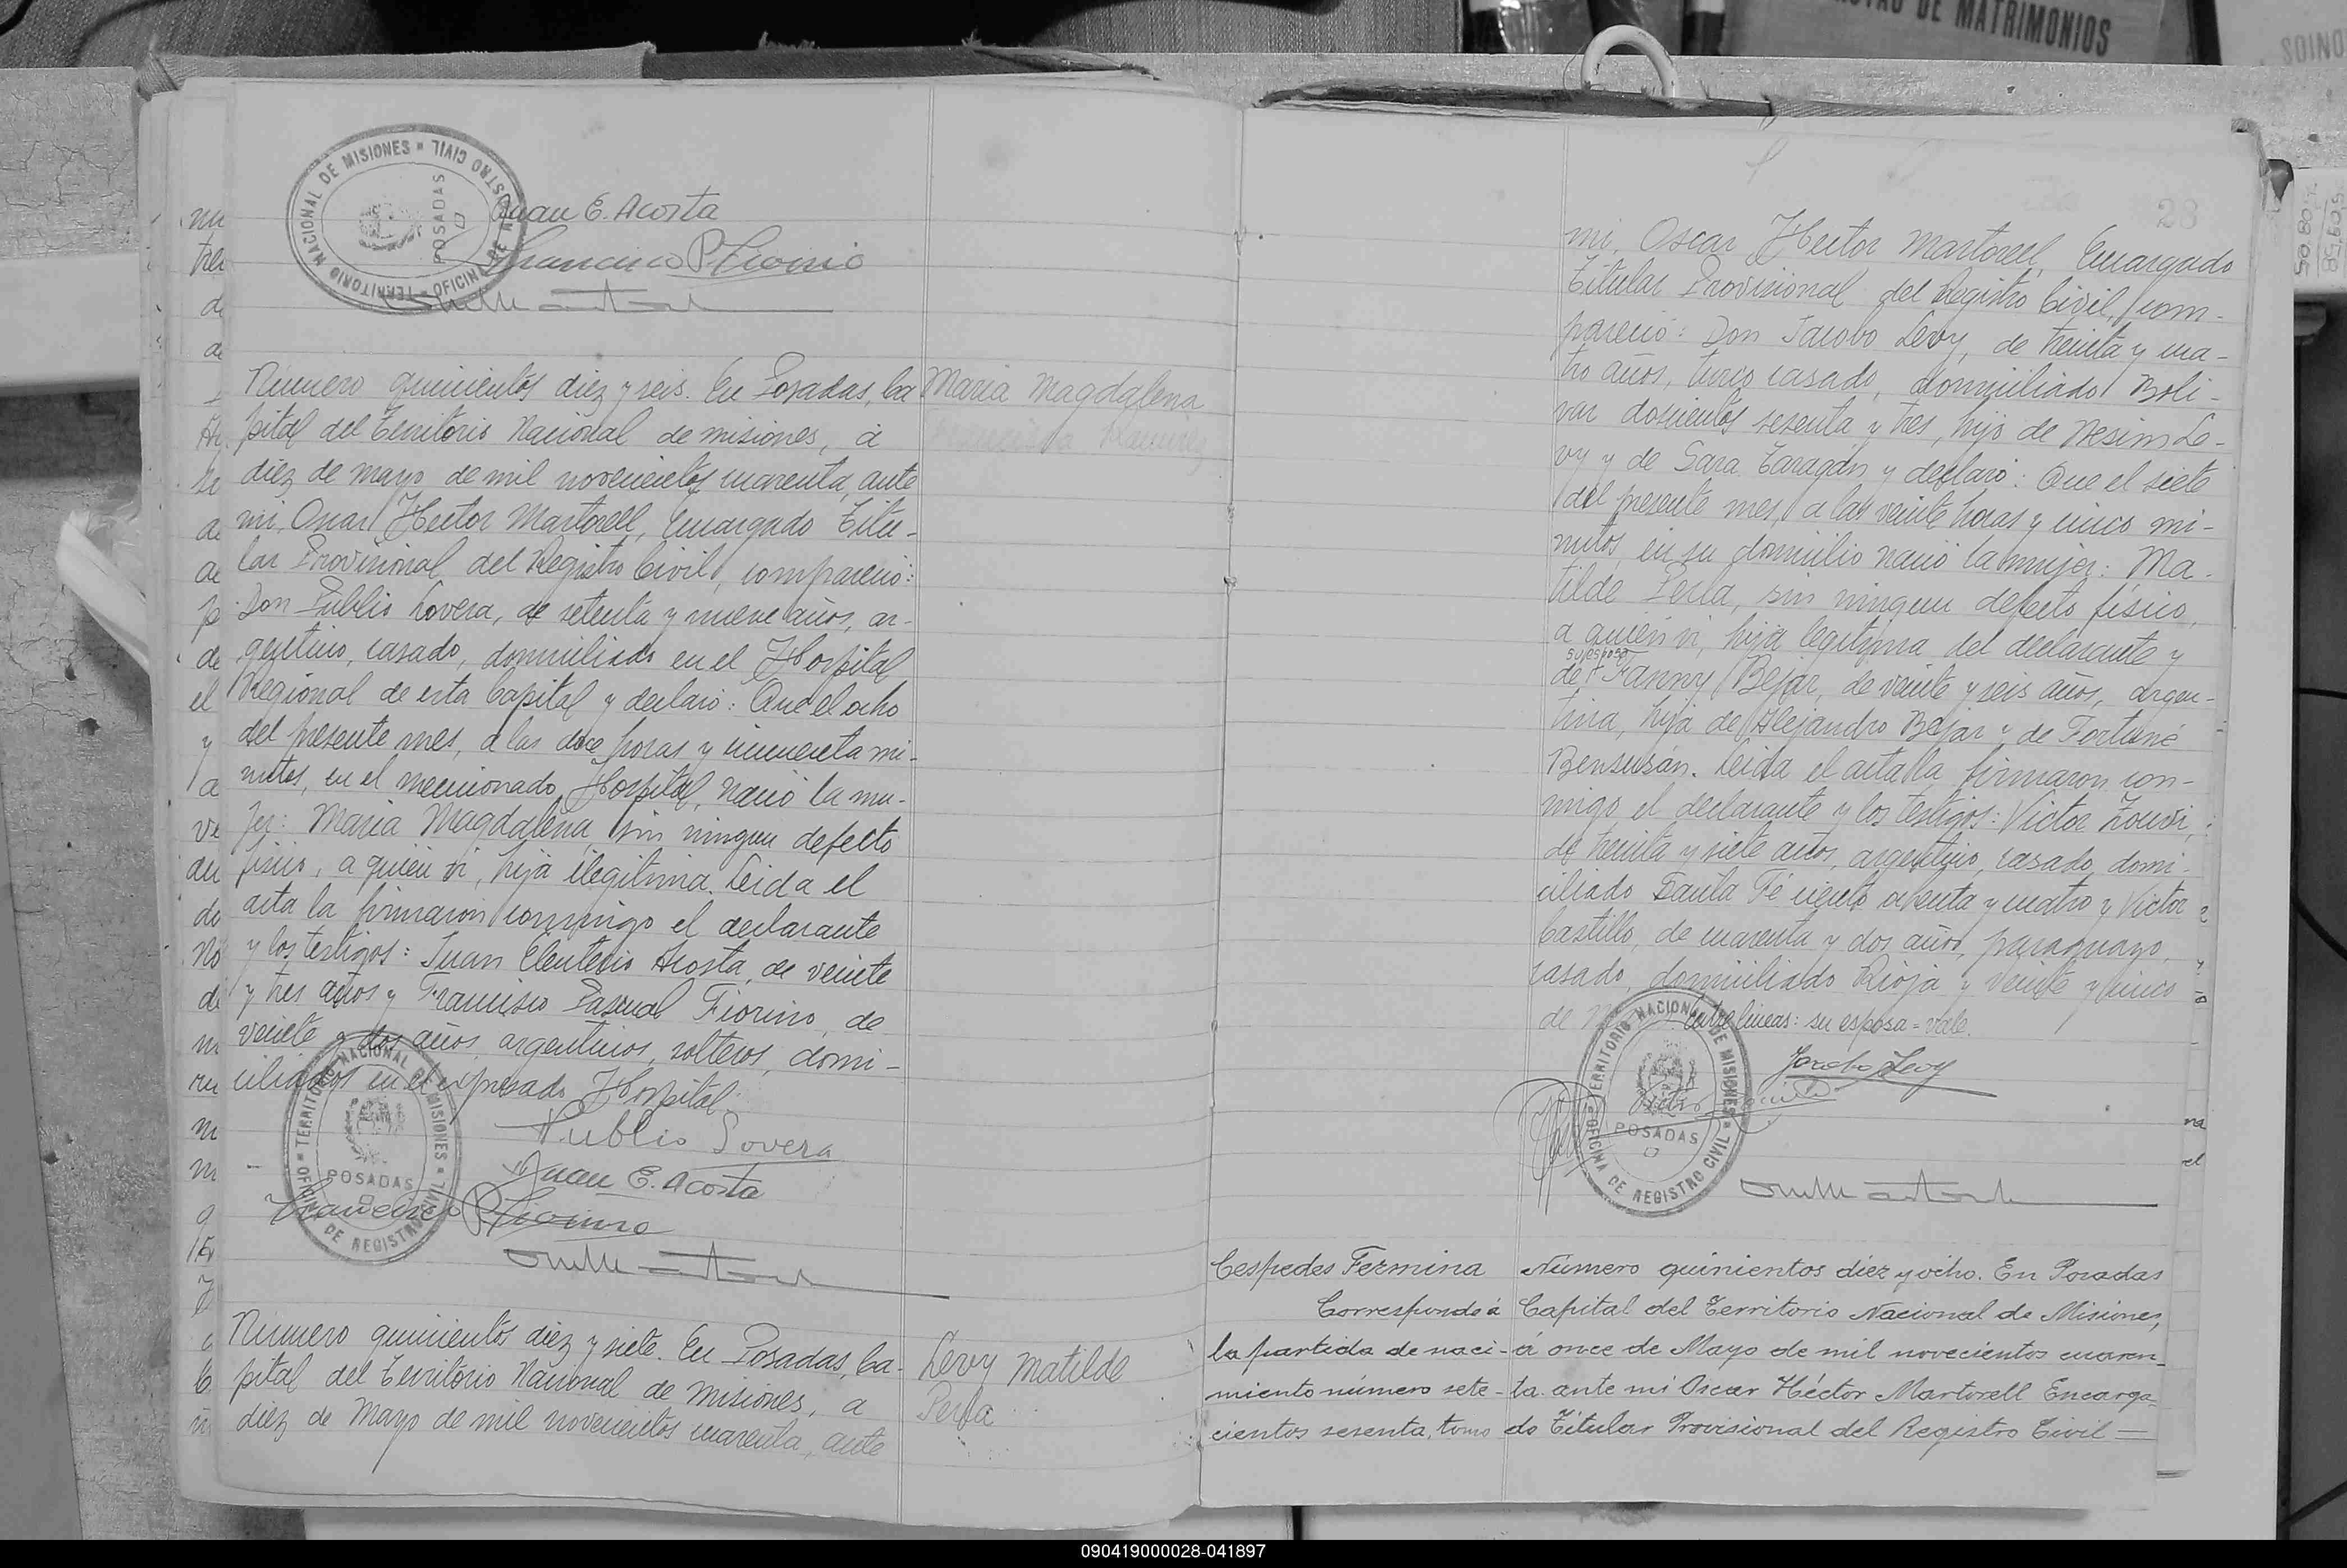 ACTAS DE MATRIMONIOS
TERRITORIO NACIONAL DE MISIONES
OFICINA DE REGISTRO CIVIL
POSADAS
Juan E. Acosta
Francisco P. Fiorino
Número quinientos diez y seis. En Posadas, Ca
pital del Territorio Nacional de misiones, a
diez de mayo de mil novecientos cuarenta, ante
mi, Oscar Hector Martorell, Encargado Titu-
lar Provisional del Registro Civil, compareció:
Don Publio Lovera, de setenta y nueve años, ar-
gentino, casado, domiciliado en el Hospital
Regional de esta Capital y declaró: Que el ocho
del presente mes, a las doce horas y cincuenta mi-
nutos, en el mencionado Hospital, nació la mu-
jer: Maria Magdalena, sin ningun defecto
físico, a quien vi, hija ilegitima. Leida el
acta la firmaron conmigo el declarante
y los testigos: Juan Eleuterio Acosta, de veinte
y tres años y Francisco Pascual Fiorino, de
veinte y dos años, argentinos, solteros, domi-
ciliados en el expresado Hospital.
Maria Magdalena
Publio Lovera
Juan E. Acosta
Francisco P. Fiorino
TERRITORIO NACIONAL DE MISIONES
OFICINA DE REGISTRO CIVIL
POSADAS
Número quinientos diez y siete. En Posadas, Ca-
pital del Territorio Nacional de Misiones, a
diez de Mayo de mil novecientos cuarenta, ante
Levy Matilde
Perla
28
mi, Oscar Hector Martorell, Encargado
Titular Provisional del Registro Civil, com-
pareció: Don Jacobo Levy, de treinta y cua-
tro años, turco, casado, domiciliado Boli-
var doscientos sesenta y tres, hijo de Nesim Le-
vy y de Sara Taragán y declaró: Que el siete
del presente mes, a las veinte horas y cinco mi-
nutos, en su domicilio nació la mujer: Ma-
tilde Perla, sin ningun defecto físico,
a quien vi, hija legitima del declarante y
su esposa
de Fanny Bejar, de veinte y seis años, argen-
tina, hija de Alejandro Bejar y de Fortuné
Bensusán. Leida el acta la firmaron con-
migo, el declarante y los testigos: Victor Zouvi,
de treinta y siete años, argentino, casado, domi-
ciliado Santa Fé ciento ochenta y cuatro y Victor
Castillo, de cuarenta y dos años, paraguayo,
casado, domiciliado Rioja y Veinte y cinco
de entre lineas: su esposa=vale.
Jacobo Levy
TERRITORIO NACIONAL DE MISIONES
OFICINA DE REGISTRO CIVIL
POSADAS
Cespedes Fermina
Corresponde á
la partida de naci-
miento número sete-
cientos sesenta, tomo
Número quinientos diez y ocho. En Posadas
Capital del Territorio Nacional de Misiones,
á once de Mayo de mil novecientos cuaren-
ta. ante mí Oscar Héctor Martorell Encarga-
do Titular Provisional del Registro Civil —
090419000028-041897